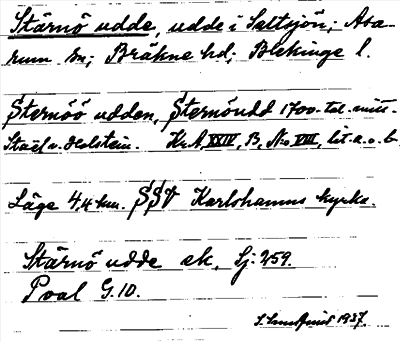 Stärnö udde, udde i Saltsjön; Asa-
rum sn; Bräkne hd; Blekinge l.
Sternöö udden, Sternöudd 1700-tal. mit.
Staël v. Holstein. Kr. A. XXIV, B, No VIII, lit. a. o. b.
Läge 4,4 km. SSV Karlshamns kyrka.
Stärnö udde ek. Sj: 259.
Pval G. 10.
1937.